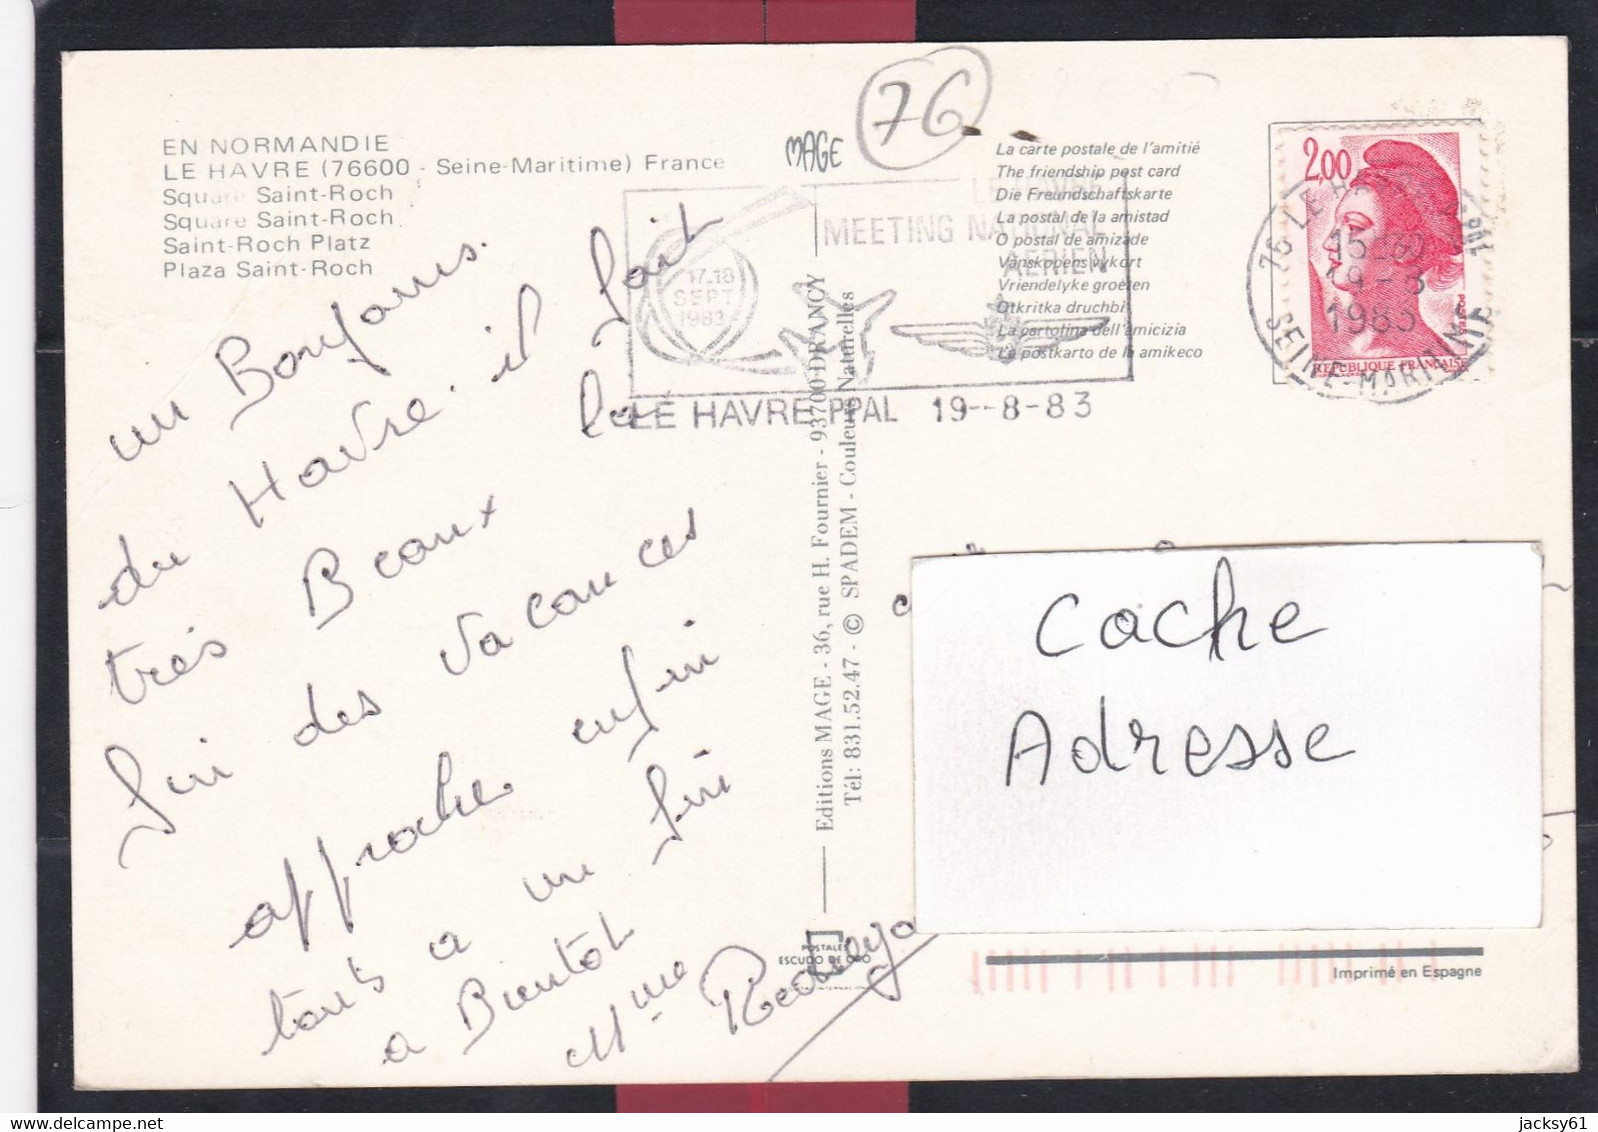 76
EN NORMANDIE
LE HAVRE (76600 - Seine-Maritime) France
Square Saint-Roch
Square Saint-Roch
Saint-Roch Platz
Plaza Saint-Roch
MAGE
La carte postale de l'amitié
The friendship post card
Die Freundschaftskarte
La postal de la amistad
O postal de amizade
Vanskopens vykort
Vriendelyke groeten
Otkritka druchbi
La cartolina dell'amicizia
La postkarto de la amikeco
LE HAVRE
MEETING NATIONAL
AERIEN
17-18
SEPT
1983
LE HAVRE PPAL 19--8-83
2,00
REPUBLIQUE FRANÇAISE
POSTES
76 LE HAVRE PPAL
19-8
1983
SEINE-MARITIME
un Bonjour
du Havre il fait
très Beaux la
fin des vacances
approche enfin
tout a un fin
a Bientôt
Mme
Editions MAGE - 36, rue H. Fournier - 93700 DRANCY
Tél: 831.52.47 - © SPADEM - Couleurs Naturelles
POSTALES
ESCUDO DE ORO
Cache
Adresse
Imprimé en Espagne
delcampe.net
jacksy61